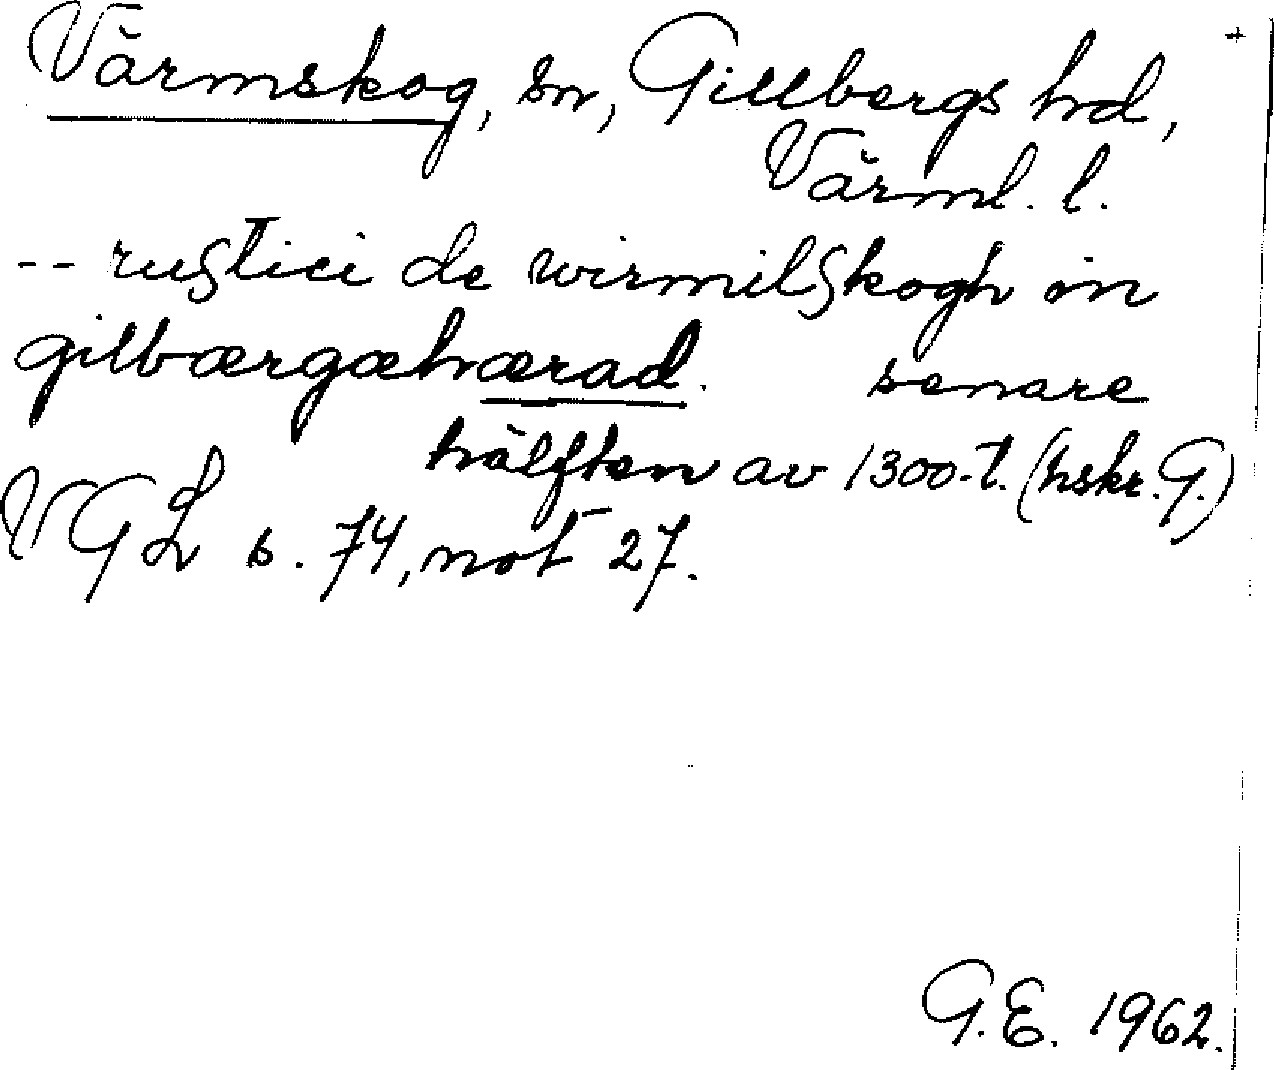 Värmskog, sn, Gillbergs hd, +
Värml. l.
-- rustici de wirmilskogh in
gilbærgæhærad. senare
hälften av 1300-t. (hskr. G.)
VGL s. 74, not 27.
G.E. 1962.